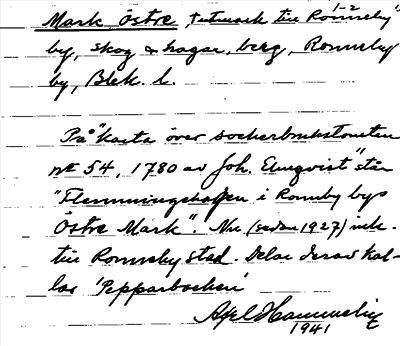 Mark, Östre, utmark till Ronneby 1-2
by, skog & hagar, berg, Ronneby
by, Blek. l.
På "karta över sockerbrukstomten
nr 54, 1780 av Joh. Elmqvist" står
"Flemmingshafven i Ronneby bys
Östre Mark". Nu (sedan 1927) ink.
till Ronneby stad. Delar därav kal-
las 'Pepparbacken'
Axel
1941